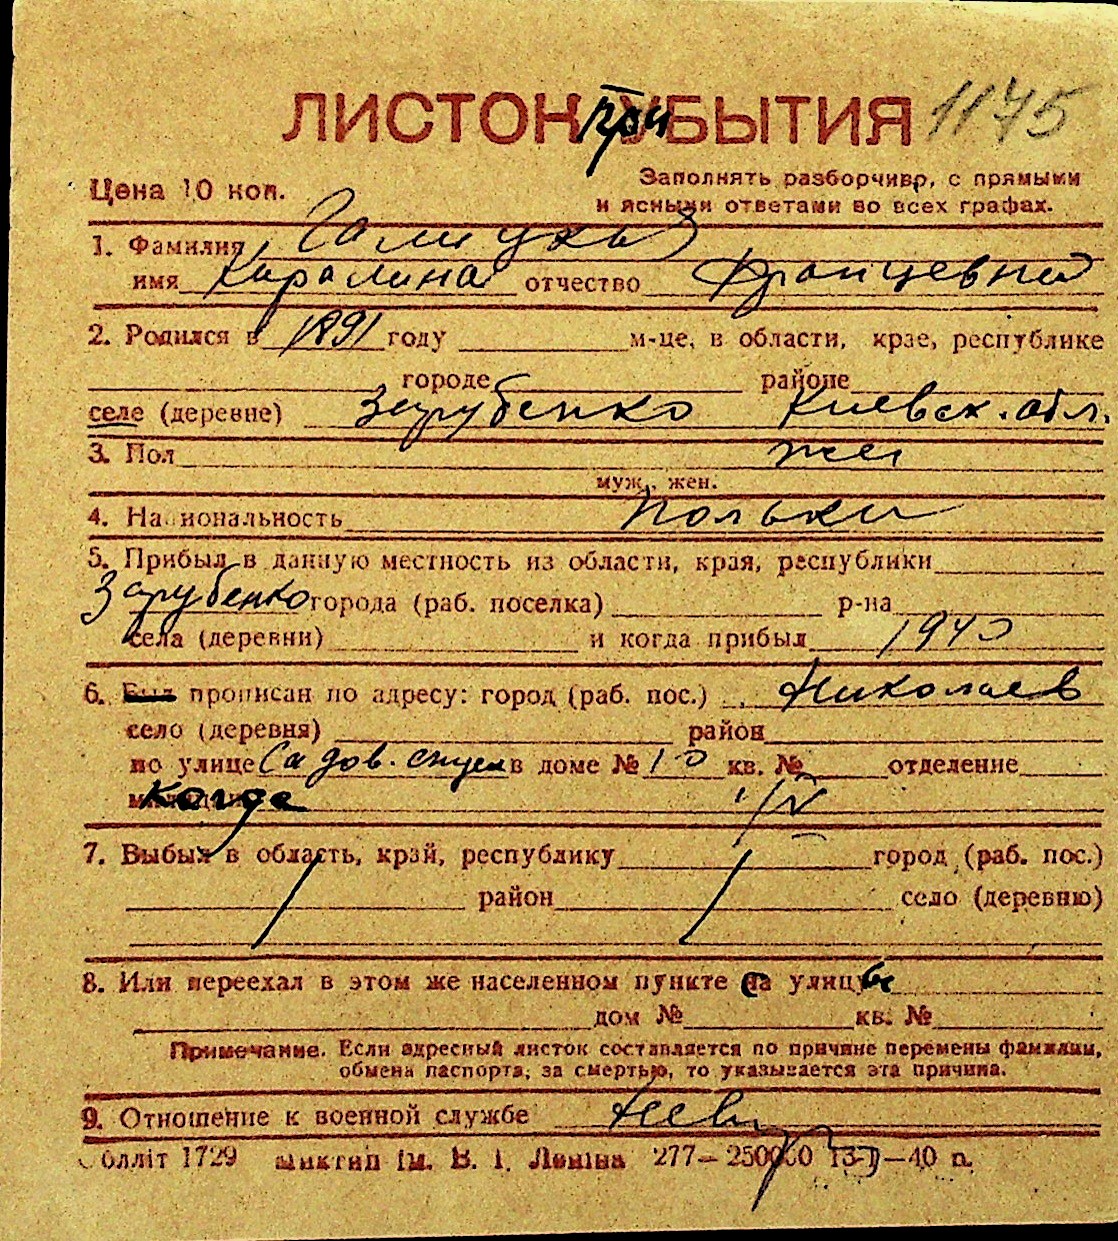 ЛИСТОК при УБЫТИЯ 1175
Цена 10 коп.
Заполнять разборчиво, с прямыми
и ясными ответами во всех графах.
1. Фамилия
имя Каралина отчество Францевна
2. Родился в 1891 году м-це, в области, крае, республике
городе районе
селе (деревне) Зарубенко Киевск. обл.
3. Пол жен
муж., жен.
4. Национальность Полька
5. Прибыл в данную местность из области, края, республики
Зарубенко города (раб. поселка) р-на
села (деревни) и когда прибыл 1940
6. Был прописан по адресу: город (раб. пос.) Николаев
село (деревня) район
по улице Садов. в доме № 10 кв. № отделение
когда
7. Выбыл в область, край, республику город (раб. пос.)
район село (деревню)
8. Или переехал в этом же населенном пункте с улицы
дом № кв. №
Примечание. Если адресный листок составляется по причине перемены фамилии,
обмена паспорта, за смертью, то указывается эта причина.
9. Отношение к военной службе
Облліт 1729 ім. В. І. Леніна 277—250000 —40 п.